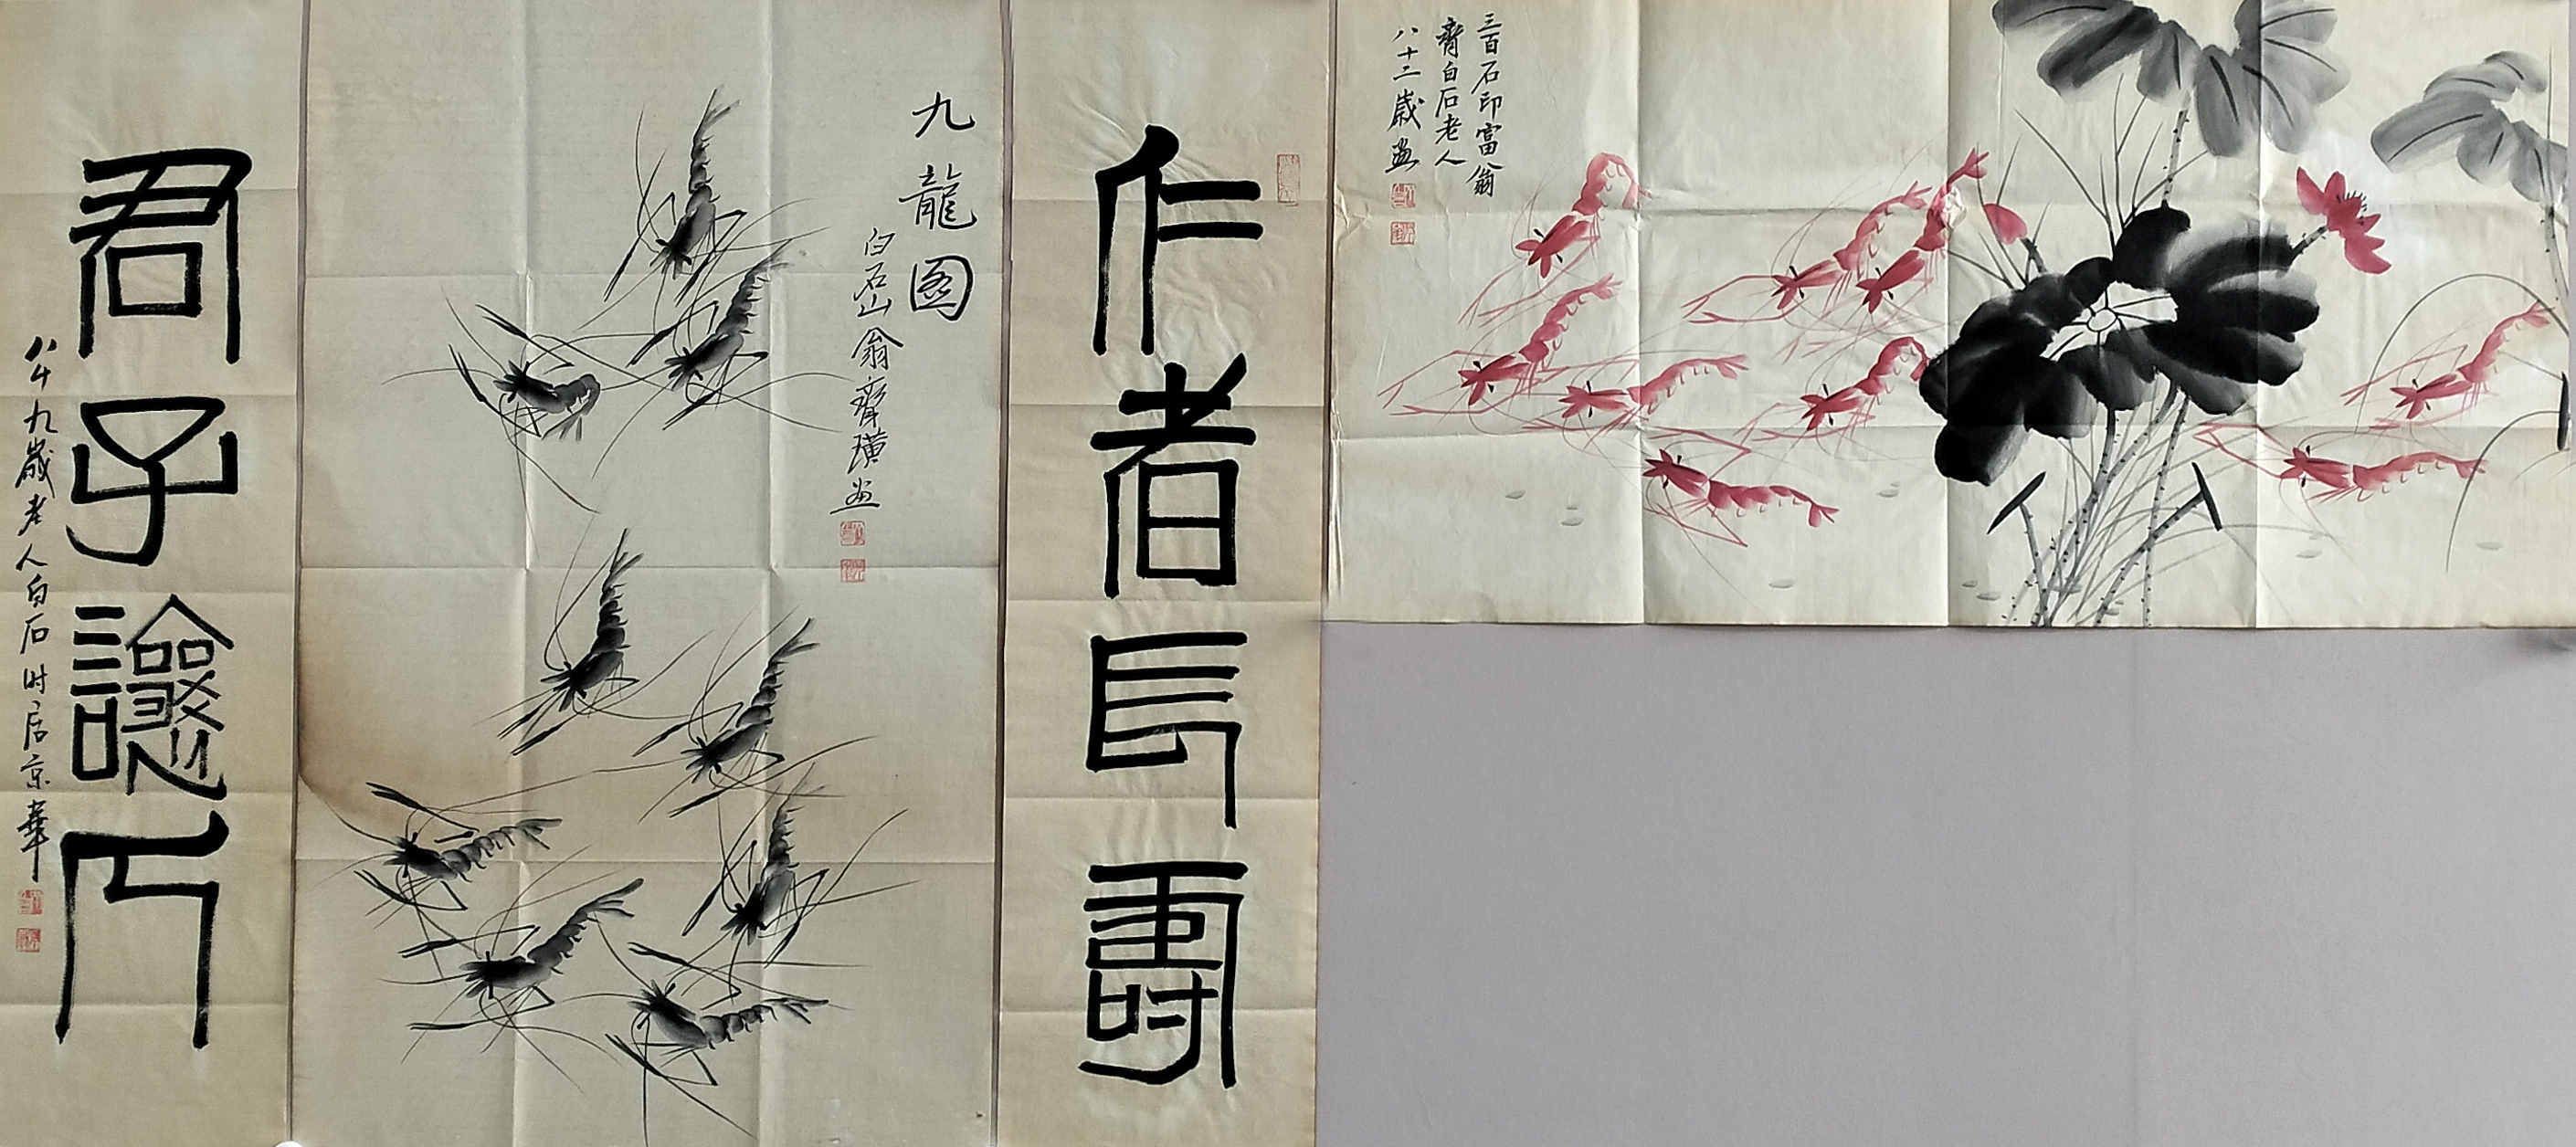 三百石印富翁
齊白石老人
八十二歲畫
仁者長壽
九龍圖
白石山翁齊璜畫
君子讓人
八十九歲老人白石时居京華